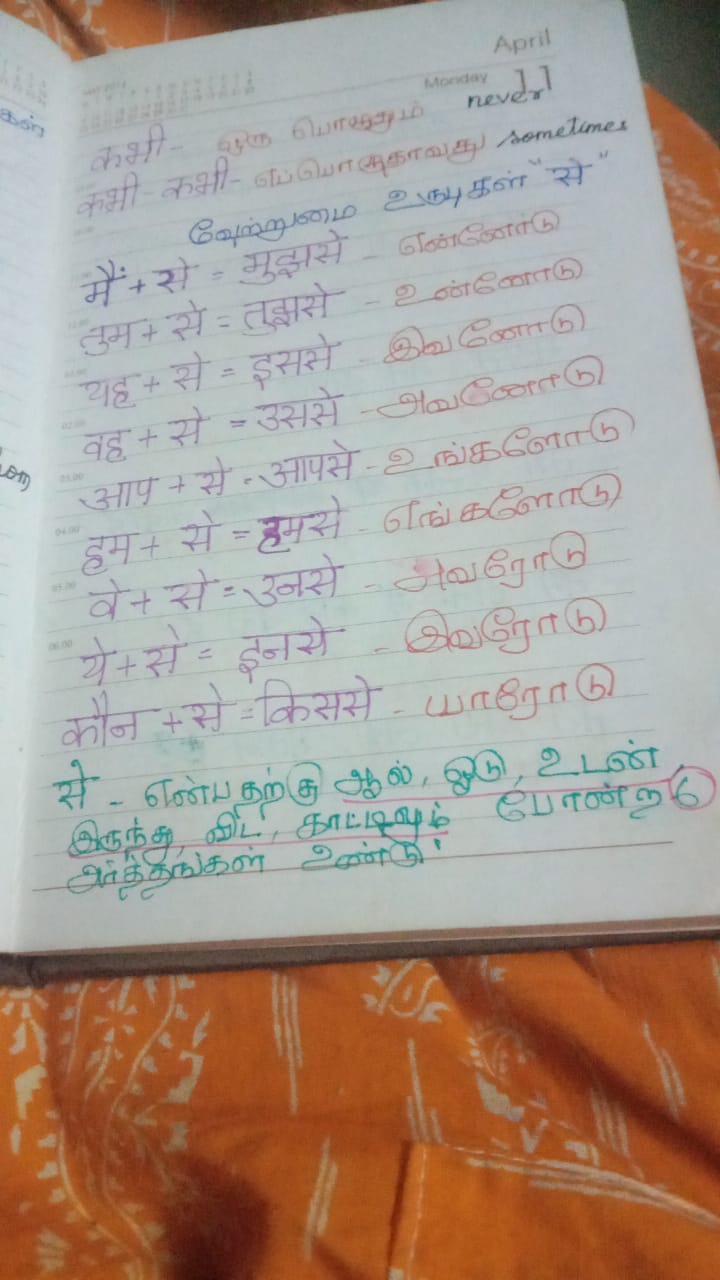 April
Monday 11
कभी - ஒரு பொழுதும் never
कभी - कभी - எப்பொழுதாவது sometimes
வேற்றுமை உருபுகள் "से"
मैं + से = मुझसे - என்னோடு
तुम + से = तुझसे - உன்னோடு
यह + से = इससे - இவனோடு
वह + से = उससे - அவனோடு
आप + से = आपसे - உங்களோடு
हम + से = हमसे - எங்களோடு
वे + से = उनसे - அவரோடு
ये + से = इनसे - இவரோடு
कौन + से = किससे - யாரோடு
से - என்பதற்கு ஆல், ஓடு, உடன்,
இருந்து, விட, காட்டிலும் போன்ற 6
அர்த்தங்கள் உண்டு.